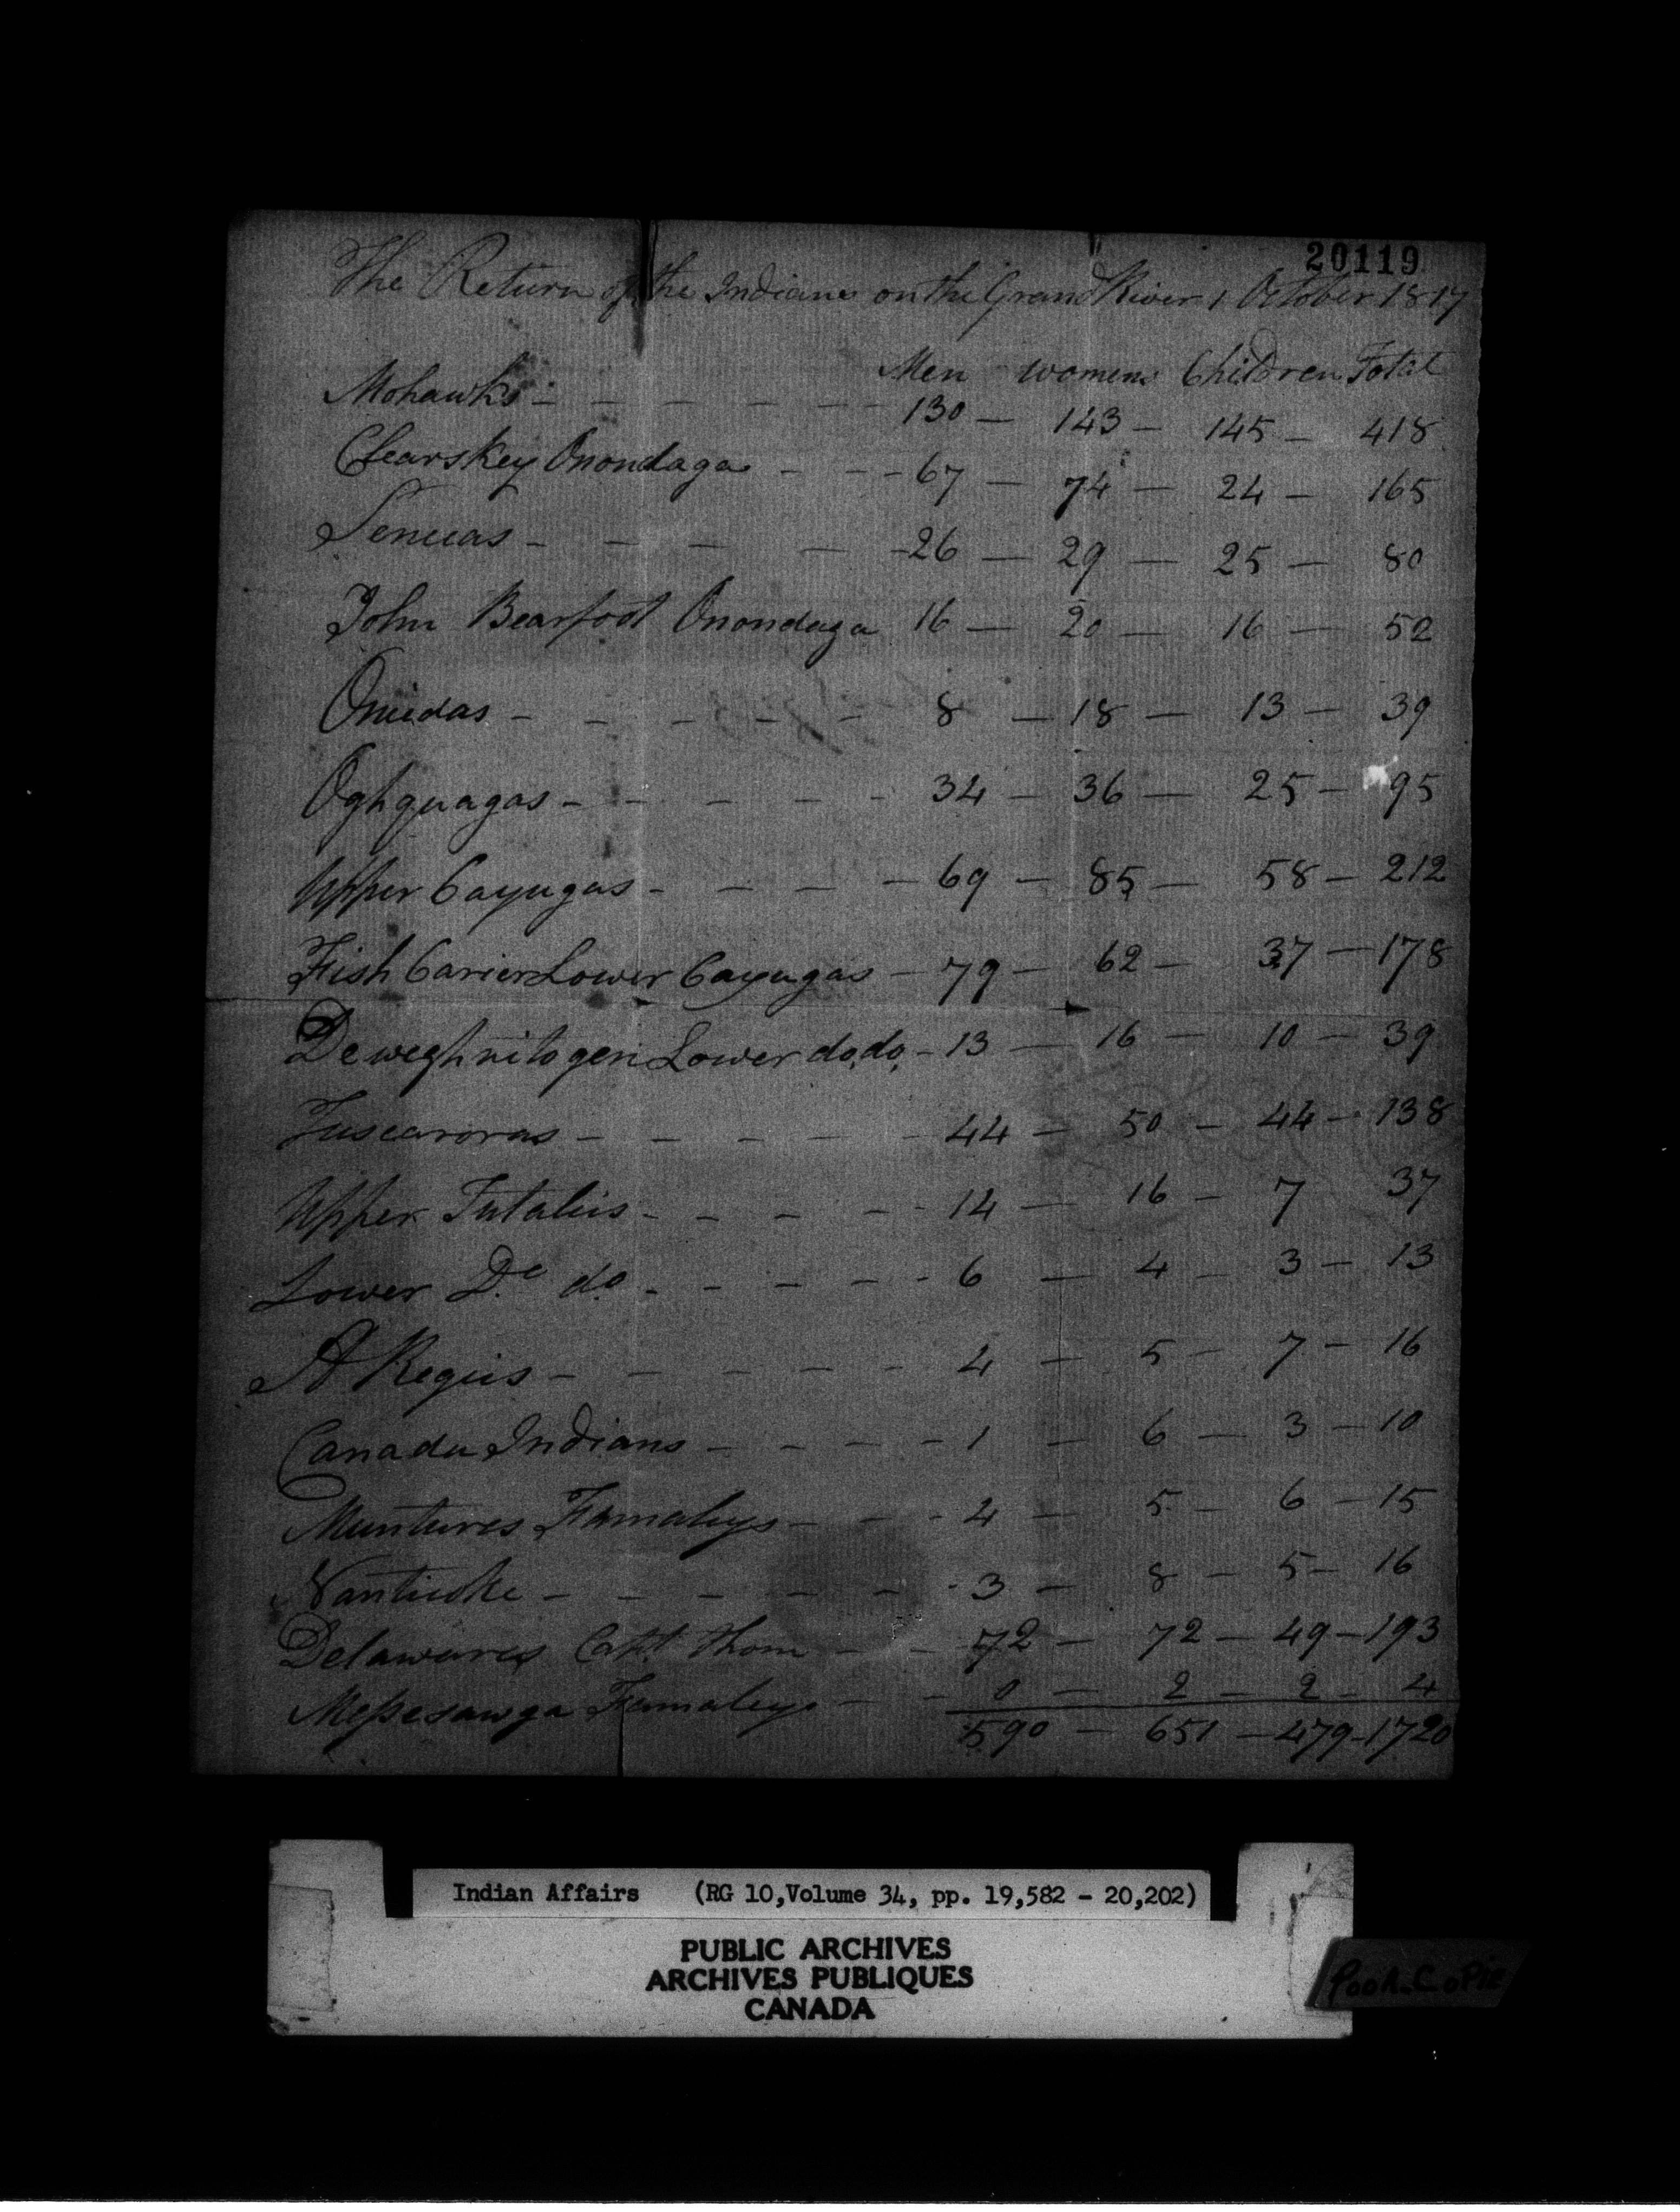 20119
The Return of the Indians on the Grand River 1 October 1817
Men women Children Total
Mohawks - - - - - - 130 - 143 - 145 - 418
Clearskey Onondaga - - - 67 - 74 - 24 - 165
Senecas - - - - - 26 - 29 - 25 - 80
John Bearfoot Onondaga 16 - 20 - 16 - 52
Oniedas - - - - - 8 - 18 - 13 - 39
Oghquagas - - - - - 34 - 36 - 25 - 95
Upper Cayugas - - - - 69 - 85 - 58 - 212
Fish Carier Lower Cayugas - 79 - 62 - 37 - 178
Deweghnitogen Lower do, do, - 13 - 16 - 10 - 39
Tuscaroras - - - - - 44 - 50 - 44 - 138
Upper Tutalies - - - - - 14 - 16 - 7 37
Lower Do do - - - - - 6 - 4 - 3 - 13
St Regies - - - - - 4 - 5 - 7 - 16
Canada Indians - - - - 1 - 6 - 3 - 10
Muntures Famaleys - - - 4 - 5 - 6 - 15
Nanticoke - - - - - - 3 - 8 - 5 - 16
Delawares Capt. Thom - - 72 - 72 - 49 - 193
Messesawga Famaleys - - 0 - 2 - 2 - 4
590 - 651 - 479 - 1720
Indian Affairs (RG 10, Volume 34, pp. 19,582 - 20,202)
PUBLIC ARCHIVES
ARCHIVES PUBLIQUES
CANADA
Poor Copie